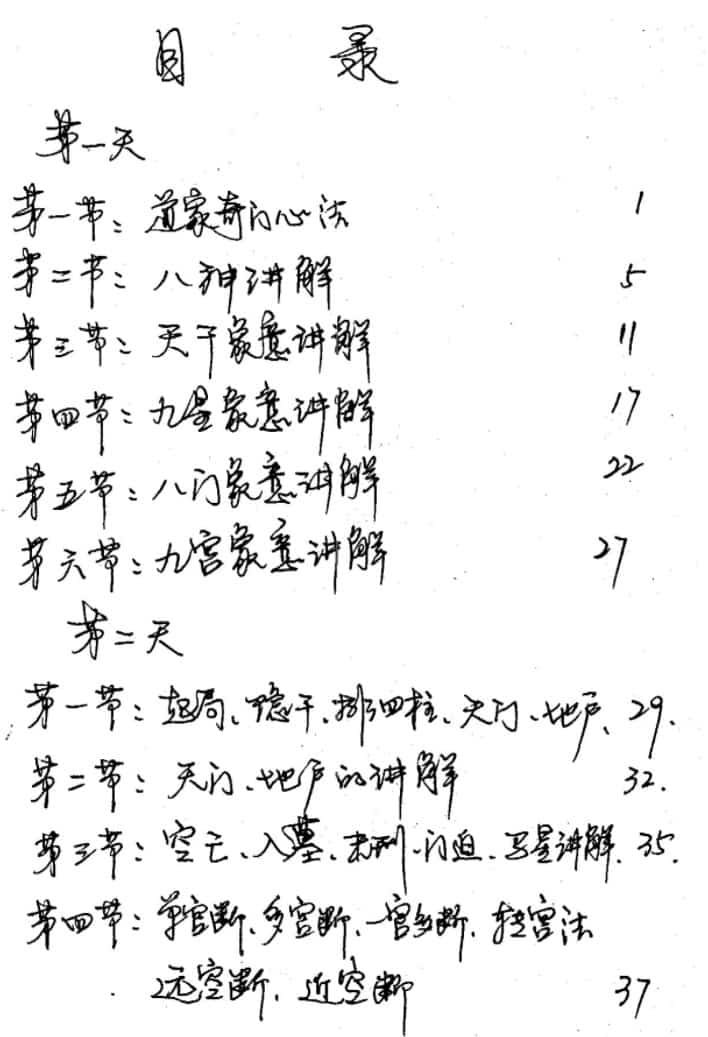 目 录
第一天
第一节：道家奇门心法 1
第二节：八神讲解 5
第三节：天干象意讲解 11
第四节：九星象意讲解 17
第五节：八门象意讲解 22
第六节：九宫象意讲解 27
第二天
第一节：起局、隐干、排四柱、天门、地户、29.
第二节：天门、地户的讲解 32.
第三节：空亡、入墓、击刑、门迫、马星讲解、35.
第四节：单宫断、多宫断、一宫多断、转宫法
远空断、近空断 37